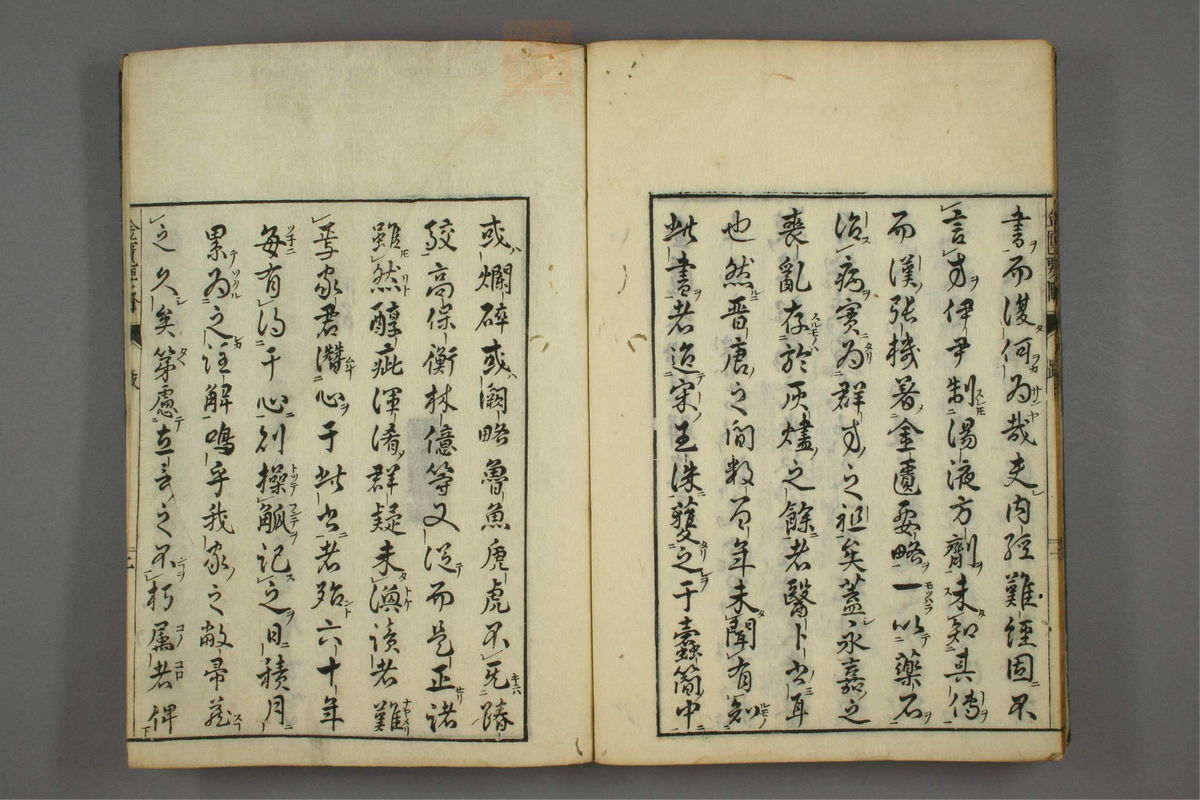 書而復何為哉夫内經難經固不
言方伊尹制湯液方劑未知真傳
而漢張機著金匱要略一以藥石
治病實為群方之祖矣蓋永嘉之
喪亂存於灰燼之餘者醫卜書耳
也然晋唐之間数百年未聞有知
此書者迨宋王洙獲之于蠹簡中
或爛碎或闕略魯魚虎虎不死蹐
高保衡林億等又從而是正諸
雖然醇疵渾淆群疑未渙讀者難
等家君潜心于此書者殆六十年
每有得于心則操觚記之日積月
累為之註解嗚乎我家之敝帚苙
之久矣第慮立言之不朽属者俾